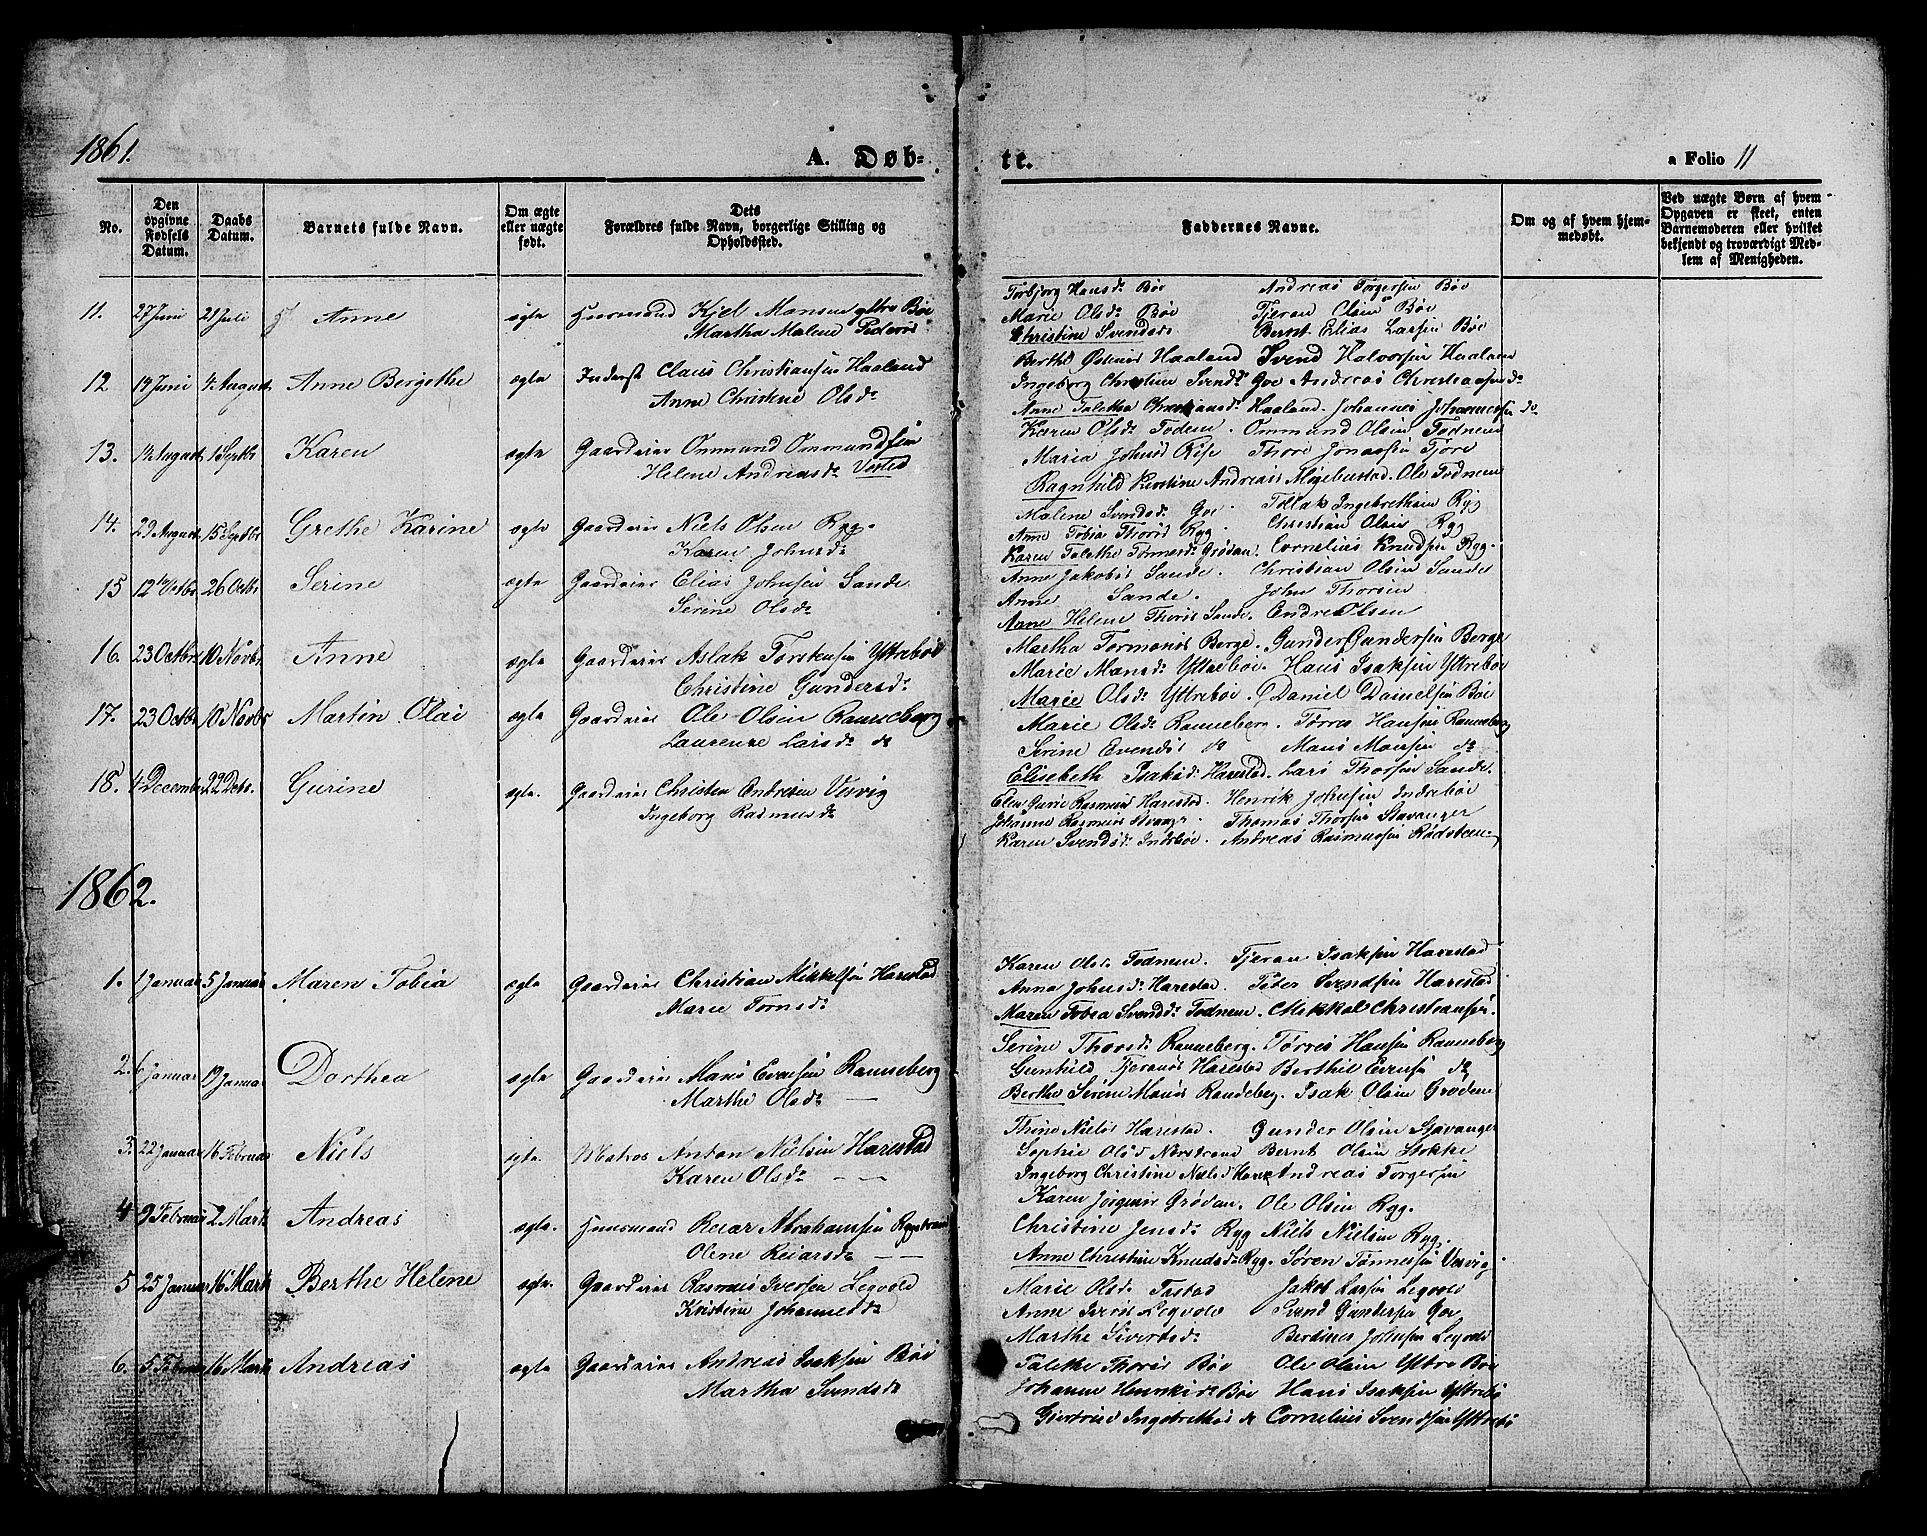 1861.
A. Døb-
te.
a Folio 11
No.
Den opgivne Fødsels Datum.
Daabs Datum.
Barnets fulde Navn.
Om ægte eller uægte født.
Dets Forældres fulde Navn, borgerlige Stilling og Opholdssted.
Faddernes Navne.
Om og af hvem hjem-medøbt.
Ved uægte Børn af hvem Opgaven er skeet, enten Barnemoderen eller hvilket bekjendt og troværdigt Med-lem af Menigheden.
11. 27 Juni 21 Juli Anne ægte Huusmand Kjel Monsen Bøe
Martha Malene Peders
Torbjorg Hansdr Bøe Andreas Torgersen Bøe
Marie Olsdr Bøe Tjeran Olsen Bøe
Christine Svendsdr Bernt Elias Larsen Bøe
12. 19 Juni 4 August Anne Bergethe ægte Inderst Claus Christiansen Haaland
Anne Christine Olsdr
Berthe Haaland Svend Halvorsen Haaland
Ingeborg Christine Svendsd Goe Andreas Christiansen do
Anne Talette Christiansdr Haaland. Johannes Johannessen do
13. 14 August 1 Septbr Karen ægte Gaardeier Ommund Ommundsen
Helene Andreasdr Vested
Karen Olsdr Todnem. Ommund Olsen Todnem
Maria Johnsd Rise Thore Jonassen Tjore
Ragnhild Kirstine Andreas Mogebustad. Ole Todnem
14. 29 August 15 Septbr Grethe Karine ægte Gaardeier Niels Olsen Ryg.
Karen Johnsdr
Malene Svendsd. Goe. Tollak Ingebrethsen Ryg
Anne Tobia Thors Ryg. Christian Olsen Ryg
Karen Talethe Tønnesdr Grødan. Cornelius Knudsen Ryg.
15 12 Octbr 26 Octbr Serine ægte Gaardeier Elias Johnsen Sande
Serine Olsdr
Anne Jakobs Sande. Christian Olsen Sande
Anne Sande. John Thorsen
Anne Helene Thors Sande. Endre Olsen
16. 23 Octbr 10 Novbr Anne ægte Gaardeier Aslak Torstensen Yttrebøe
Christine Gundersdr
Martha Tormods Berge. Gunder Gundersen Berge
Marie Mansdr Yttrebøe. Hans Isaksen Yttrebøe
Marie Olsdr Yttrebøe. Daniel Danielsen Bøe
17. 23 Octbr 10 Novbr Martin Olai ægte Gaardeier Ole Olsen Ranneberg
Laurenze Larsdr do
Marie Olsdr Ranneberg. Tørres Hansen Ranneberg
Serine Evends do Mans Mansen do
Elisebeth Isaksd. Harestad. Lars Thorsen Sande.
18. 4 December 22 Decbr. Gurine ægte. Gaardeier Christen Endresen Vesvig
Ingeborg Rasmusdr
Elen Gurie Rasmus Harestad. Henrik Johnsen Indrebøe
Johanne Rasmus Stavanger. Thomas Thorsen Stavanger
Karen Svendsdr Indrebøe. Andreas Rasmussen Rødsteen
1862.
1. 1 Januar 5 Januar Maren Tobia ægte Gaardeier Christian Mikkelsen Harestad
Marie Tornsdr
Karen Olsdr Todnem. Tjeran Isaksen Harestad
Anna Johnsdr Harestad. Peter Svendsen Harestad
Maren Tobea Svendsdr Todnem. Mikkal Christiansen.
2. 6 Januar 19 Januar Dorthea ægte Gaardeier Mans Evensen Ranneberg
Marthe Olsdr —
Serine Thorsdr Ranneberg. Tørres Hansen Ranneberg
Gunhild Tjerans Harestad Berthel Evensen do
Berthe Serene Mans Randeberg. Isak Olsen Grødem
3. 22 Januar 16 Februar Niels ægte. Matros Anton Nielsen Harestad
Karen Olsdr — —
Thine Niels Harestad. Gunder Olsen Stavanger
Sophie Olsd Norstrand Bernt Olsen Stokke
Ingeborg Christine Nielsd Andreas Torgersen
4 9 Februar 2 Marts Andreas ægte. Huusmand Reiar Abrahamsen Rygstrand
Olene Reiarsdr — —
Karen Jørgens Grødan. Ole Olsen Ryg.
Christine Jensdr Ryg Niels Nielsen Ryg.
Anne Christine Knudsdr Ryg. Søren Tønnesen Vesvig
5 25 Januar 16 Marts Berthe Helene ægte. Gaardeier Rasmus Iversen Legvold
Kristine Johannesdr
Marie Olsdr Tastad Jakob Larsen Legvold
Anne Ivers Legvold Svend Gundersen Goe
Marthe Sivertsdr Berdines Johnsen Legvold
6. 5 Februar 16 Marts Andreas ægte Gaardeier Andreas Isaksen Bøe
Martha Svendsdr
Taletke Thors Bøe Ole Olsen Yttre Bøe
Johanne Henriksdr Bøe Hans Isaksen Yttrebø
Giertrud Ingebrethsd do Cornelius Svendsen Yttrebø